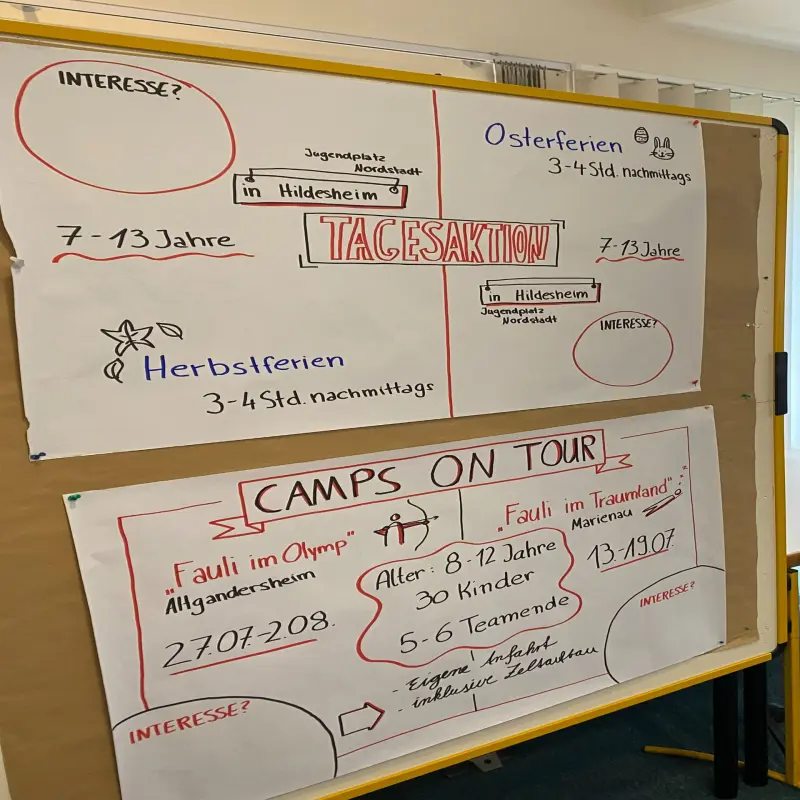 INTERESSE?
Jugendplatz
Nordstadt
in Hildesheim
7-13 Jahre
Herbstferien
3-4 Std. nachmittags
TAGESAKTION
Osterferien
3-4 Std. nachmittags
7-13 Jahre
in Hildesheim
Jugendplatz
Nordstadt
INTERESSE?
CAMPS ON TOUR
„Fauli im Olymp"
Altgandersheim
27.07.-2.08.
„Fauli im Traumland"
Marienau
13.-19.07.
Alter: 8-12 Jahre
30 Kinder
5-6 Teamende
- Eigene Anfahrt
- inklusive Zeltaufbau
INTERESSE?
INTERESSE?